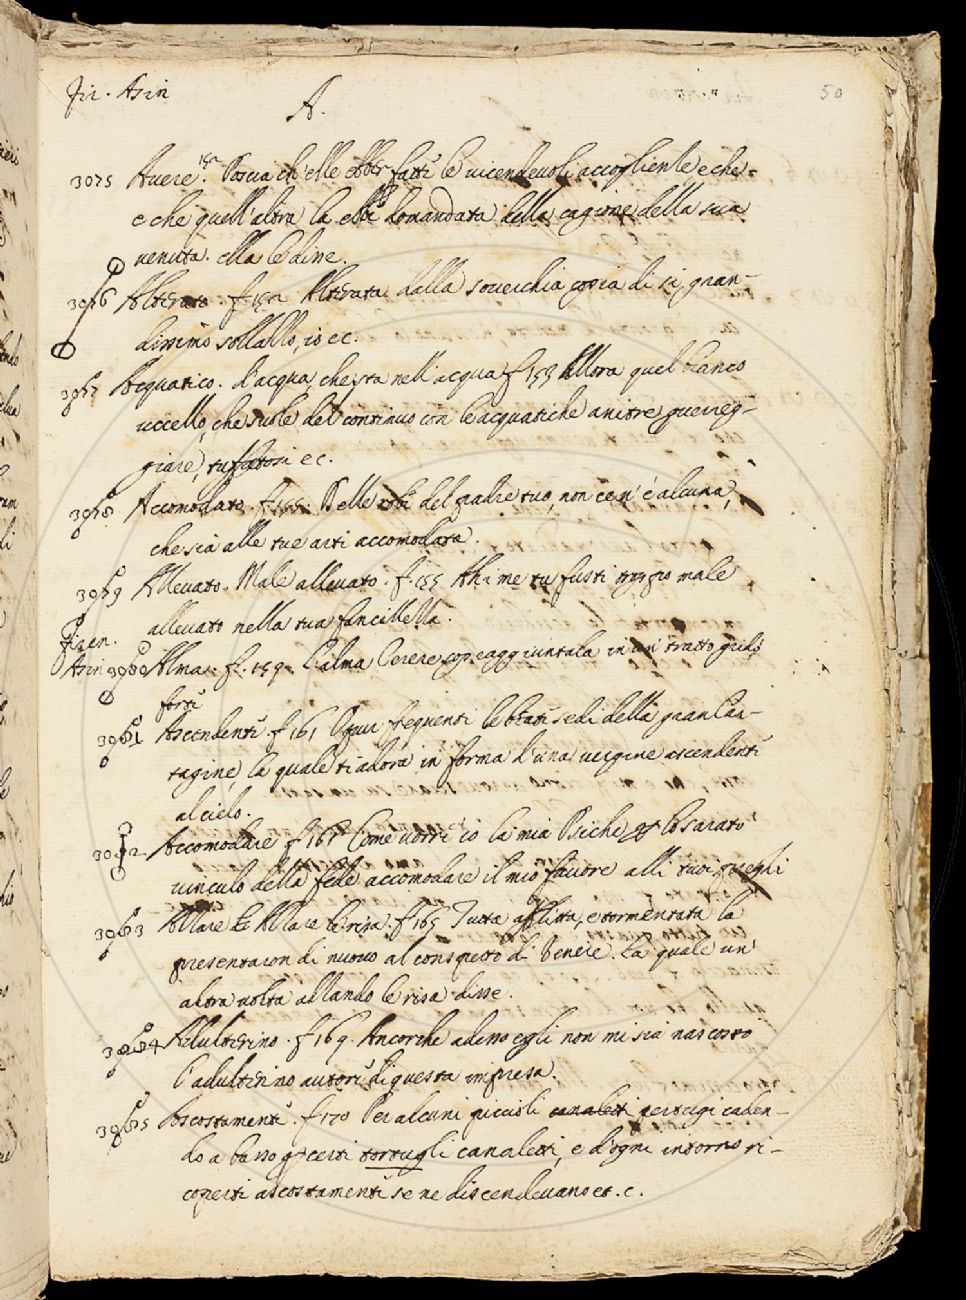 Fir. Asin
A.
50
3075 Avere. 152 Poscia ch'elle ebber fatti le vicendevoli accoglienze e che
e che quell'altra la ebbe domandata della cagione della sua
venuta. ella le disse.
3076 Alterato. f 152 Alterata dalla soverchia copia di si gran-
dissimo sollazzo, io ec.
3077 Acquatico. d'acqua, che sta nell'acqua f 153 Allora quel bianco
uccello, che suole del continuo con le acquatiche anitre guerreg-
giare, tuffatosi ec.
3078 Accomodato. f. 155. Delle robe del padre tuo, non ce n'è alcuna,
che sia alle tue arti accomodata.
3079 Allevato. Male allevato. f. 155 Ahi me tu fusti troppo male
allevato nella tua fancillella.
Firen.
Asin 3080 Alma. f. 159. L'alma Cerere sopraggiuntala in un tratto gridò
forte
3081 Ascendente f 161 O pur frequenti le beate sedi della gran Car-
tagine, la quale ti adora in forma d'una vergine ascendente
al cielo.
3082 Accomodare f 161 Come vorrò io la mia Psiche
vinculo della fede accomodare il mio favore alli tuoi prieghi
3083 Alzare le Alzare le risa. f. 165 Tutta afflitta, e tormentata la
presentaron di nuovo al conspetto di Venere. La quale un'
altra volta alzando le risa disse.
3084 Adulterino. f 169. Ancorche adesso egli non mi sia nascosto
l'adulterino autore di questa impresa.
3085 Ascostamente. f 170 Per alcuni piccioli canaletti pertugi caden-
do a basso p certi canaletti, e d'ogni intorno ri-
coperti ascostamente se ne discendevano et. c.